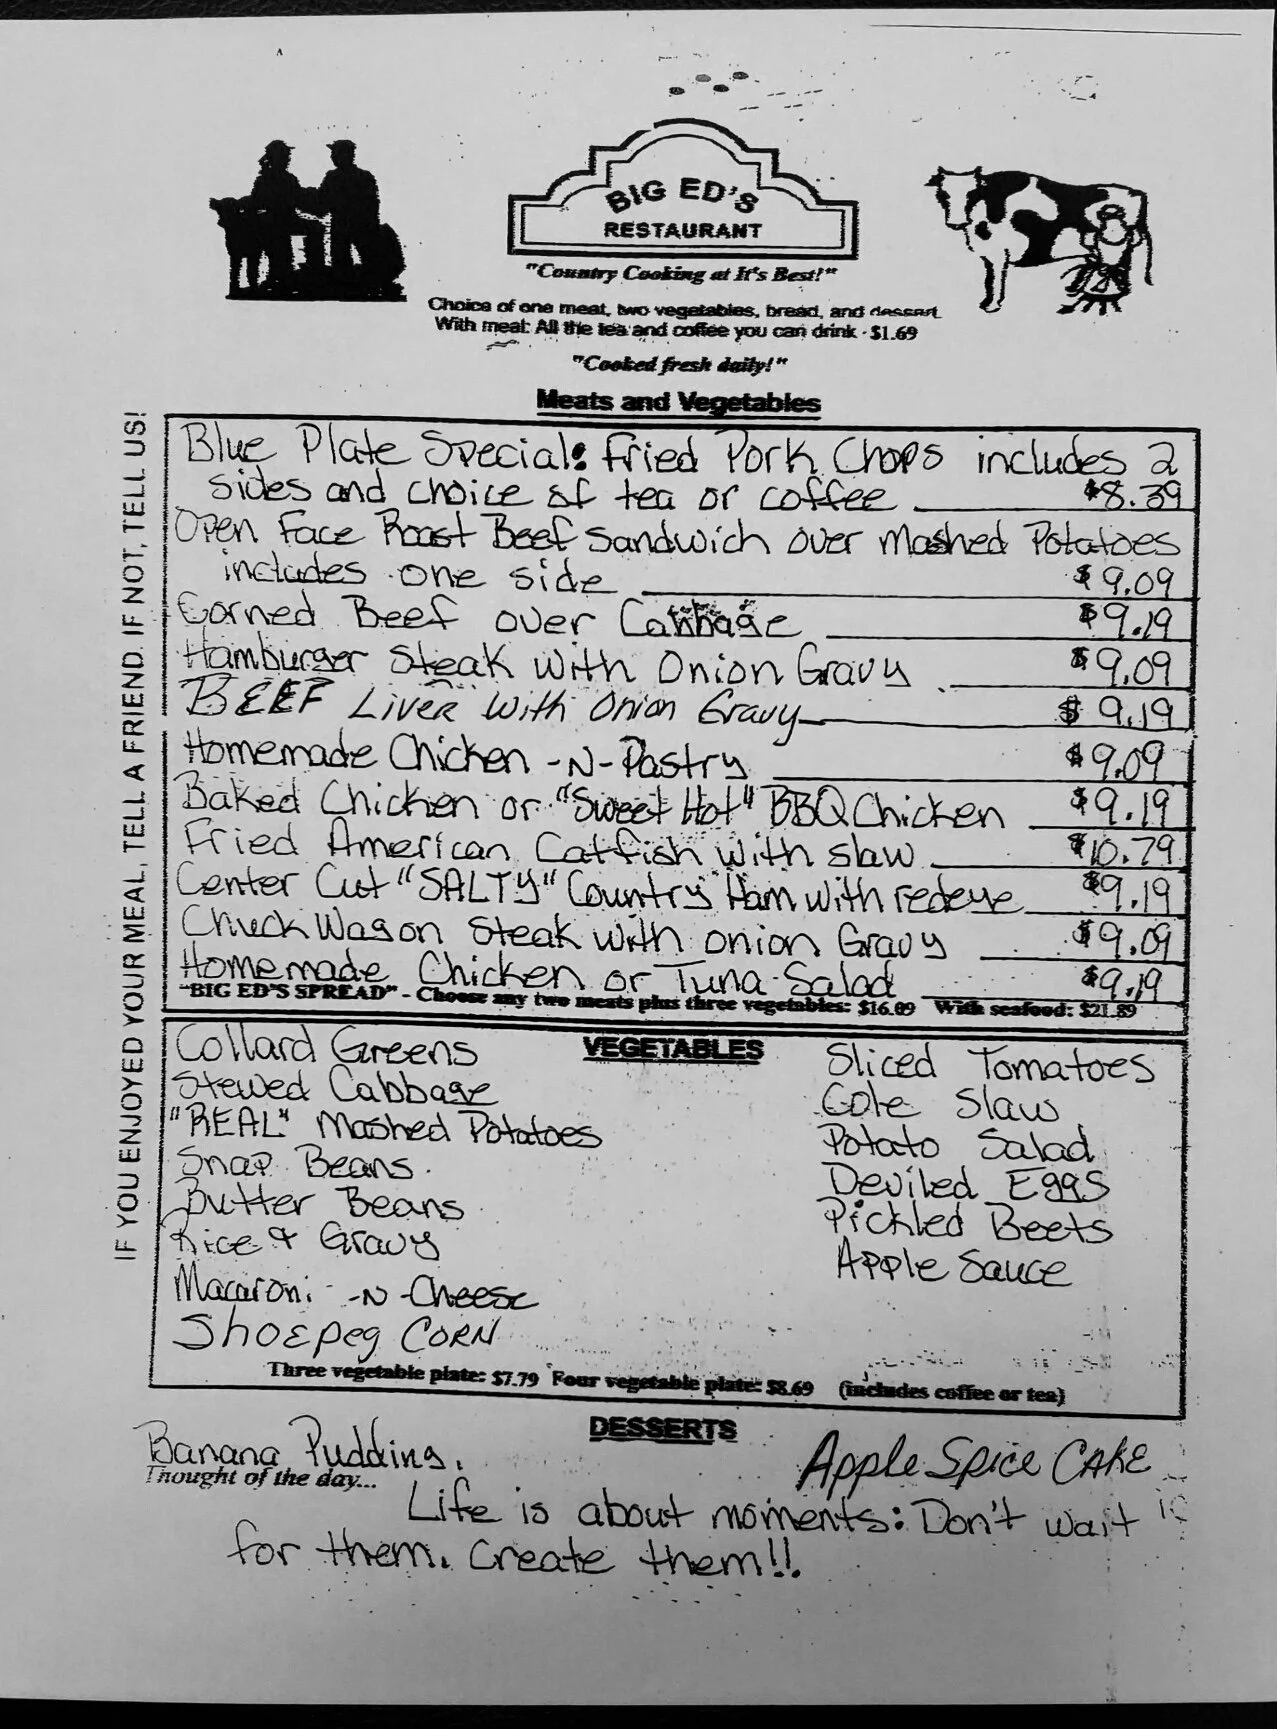 BIG ED'S
RESTAURANT
"Country Cooking at It's Best!"
Choice of one meat, two vegetables, bread, and dessert.
With meat: All the tea and coffee you can drink - $1.69
"Cooked fresh daily!"
Meats and Vegetables
IF YOU ENJOYED YOUR MEAL, TELL A FRIEND. IF NOT, TELL US!
Blue Plate Special: Fried Pork Chops includes 2
sides and choice of tea or coffee $8.39
Open Face Roast Beef Sandwich over Mashed Potatoes
includes one side $9.09
Corned Beef over Cabbage $9.19
Hamburger Steak with Onion Gravy $9.09
BEEF Liver with Onion Gravy $9.19
Homemade Chicken -N- Pastry $9.09
Baked Chicken or "Sweet Hot" BBQ Chicken $9.19
Fried American Catfish with slaw $10.79
Center Cut "SALTY" Country Ham with redeye $9.19
Chuck Wagon Steak with onion Gravy $9.09
Homemade Chicken or Tuna Salad $9.19
"BIG ED'S SPREAD" - Choose any two meats plus three vegetables: $16.09 With seafood: $21.89
VEGETABLES
Collard Greens
Stewed Cabbage
"REAL" Mashed Potatoes
Snap Beans
Butter Beans
Rice & Gravy
Macaroni -N- Cheese
Shoepeg CORN
Sliced Tomatoes
Cole Slaw
Potato Salad
Deviled Eggs
Pickled Beets
Apple Sauce
Three vegetable plate: $7.79 Four vegetable plate: $8.69 (includes coffee or tea)
DESSERTS
Banana Pudding.
Apple Spice CAKE
Thought of the day...
Life is about moments: Don't wait
for them. Create them!!.